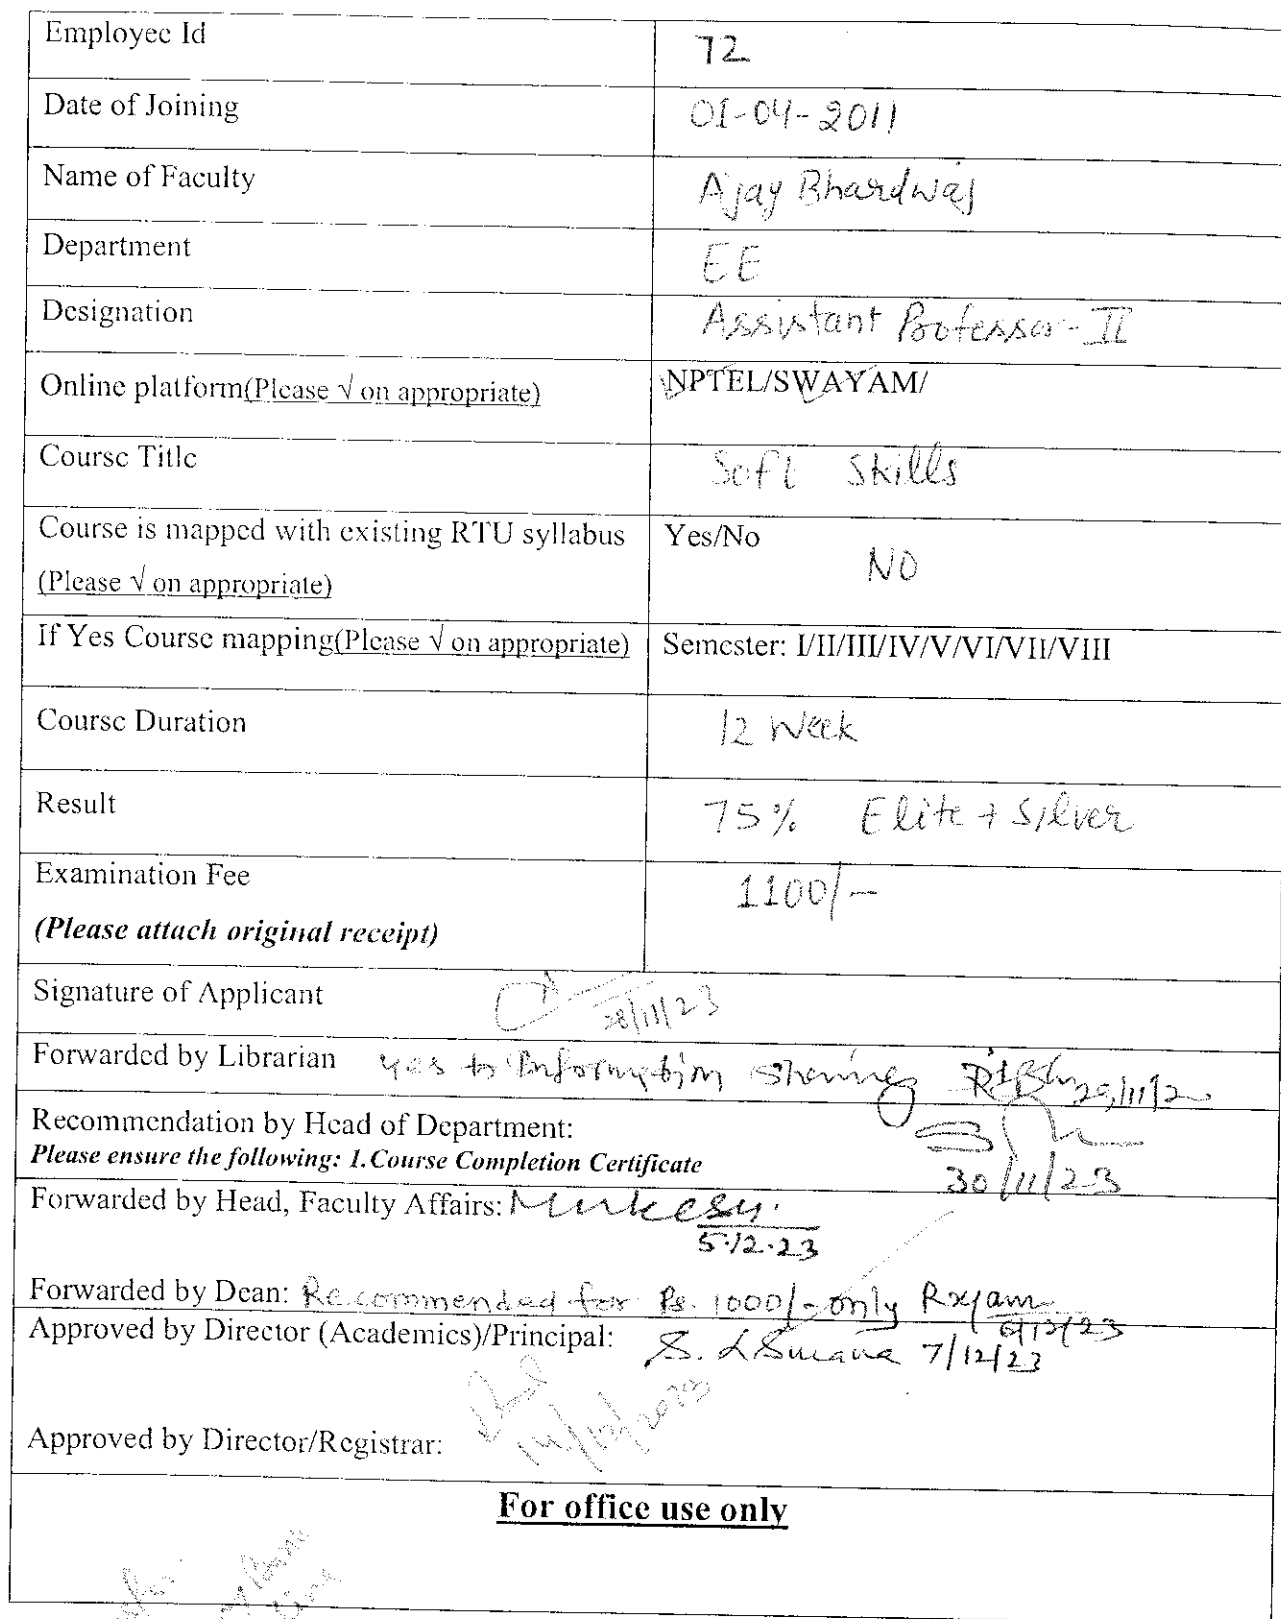 Employee Id 72
Date of Joining 01-04-2011
Name of Faculty Ajay Bhardwaj
Department EE
Designation Assistant Professor-II
Online platform(Please √ on appropriate) NPTEL/SWAYAM/
Course Title Soft Skills
Course is mapped with existing RTU syllabus Yes/No
(Please √ on appropriate) NO
If Yes Course mapping(Please √ on appropriate) Semester: I/II/III/IV/V/VI/VII/VIII
Course Duration 12 Week
Result 75% Elite + Silver
Examination Fee 1100/-
(Please attach original receipt)
Signature of Applicant 28/11/23
Forwarded by Librarian yes to Information sharing
Recommendation by Head of Department:
Please ensure the following: 1. Course Completion Certificate
30/11/23
Forwarded by Head, Faculty Affairs: Mukesh
5.12.23
Forwarded by Dean: Recommended for Rs. 1000/- only
6/12/23
Approved by Director (Academics)/Principal: 7/12/23
14/12/2023
Approved by Director/Registrar:
For office use only